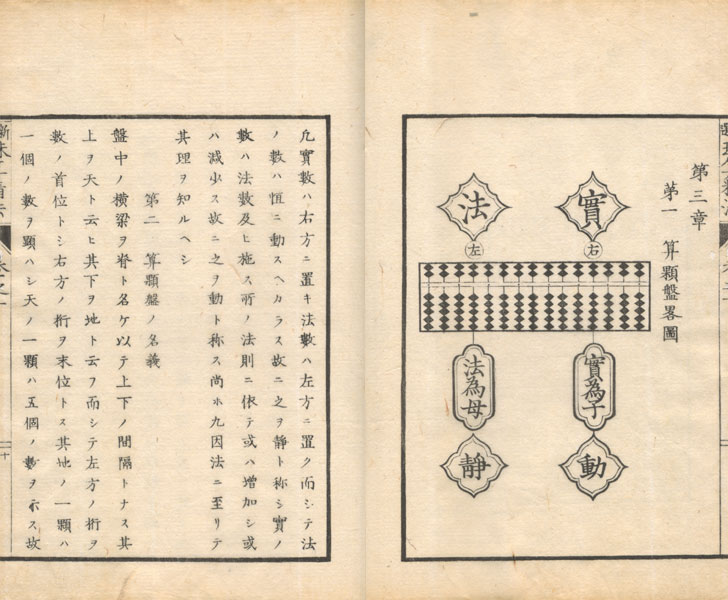 第三章
第一 算顆盤畧圖
實
右
實為子
動
法
左
法為母
靜
凡實數ハ右方ニ置キ法數ハ左方ニ置ク而シテ法
ノ數ハ恒ニ動スヘカラス故ニ之ヲ静ト称シ實ノ
數ハ法數及ヒ施ス所ノ法則ニ依テ或ハ増加シ或
ハ減少ス故ニ之ヲ動ト称ス尚ホ九因法ニ至リテ
其理ヲ知ルヘシ
第二 算顆盤ノ名義
盤中ノ横梁ヲ脊ト名ケ以テ上下ノ間隔トナス其
上ヲ天ト云ヒ其下ヲ地ト云フ而シテ左方ノ桁ヲ
數ノ首位トシ右方ノ桁ヲ末位トス其地ノ一顆ハ
一個ノ數ヲ顕ハシ天ノ一顆ハ五個ノ數ヲ示ス故